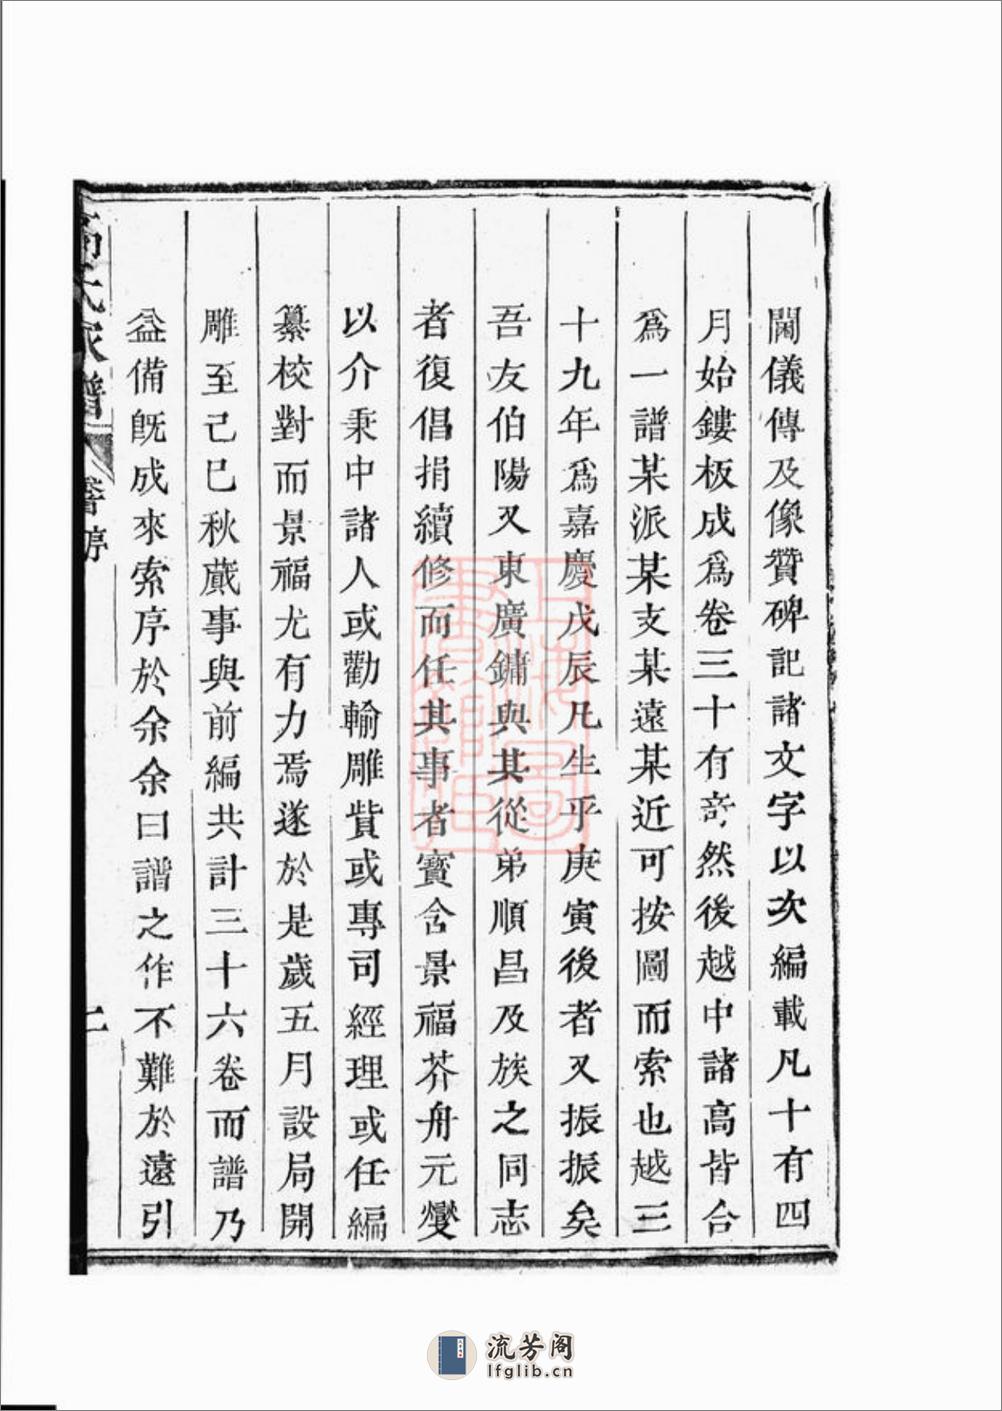 閫儀傳及像贊碑記諸文字以次編載凡十有四
月始鏤板成爲卷三十有竒然後越中諸高皆合
爲一譜某派某支某遠某近可按圖而索也越三
十九年爲嘉慶戊辰凡生乎庚寅後者又振振矣
吾友伯陽又東廣鏞與其從弟順昌及族之同志
者復倡捐續修而任其事者寳含景福芥舟元燮
以介秉中諸人或勸輸雕貲或專司經理或任編
纂校對而景福尤有力焉遂於是歲五月設局開
雕至己巳秋蕆事與前編共計三十六卷而譜乃
益備旣成來索序於余余曰譜之作不難於遠引
高氏家譜 舊序 二
上海圖書館藏
流芳阁
lfglib.cn